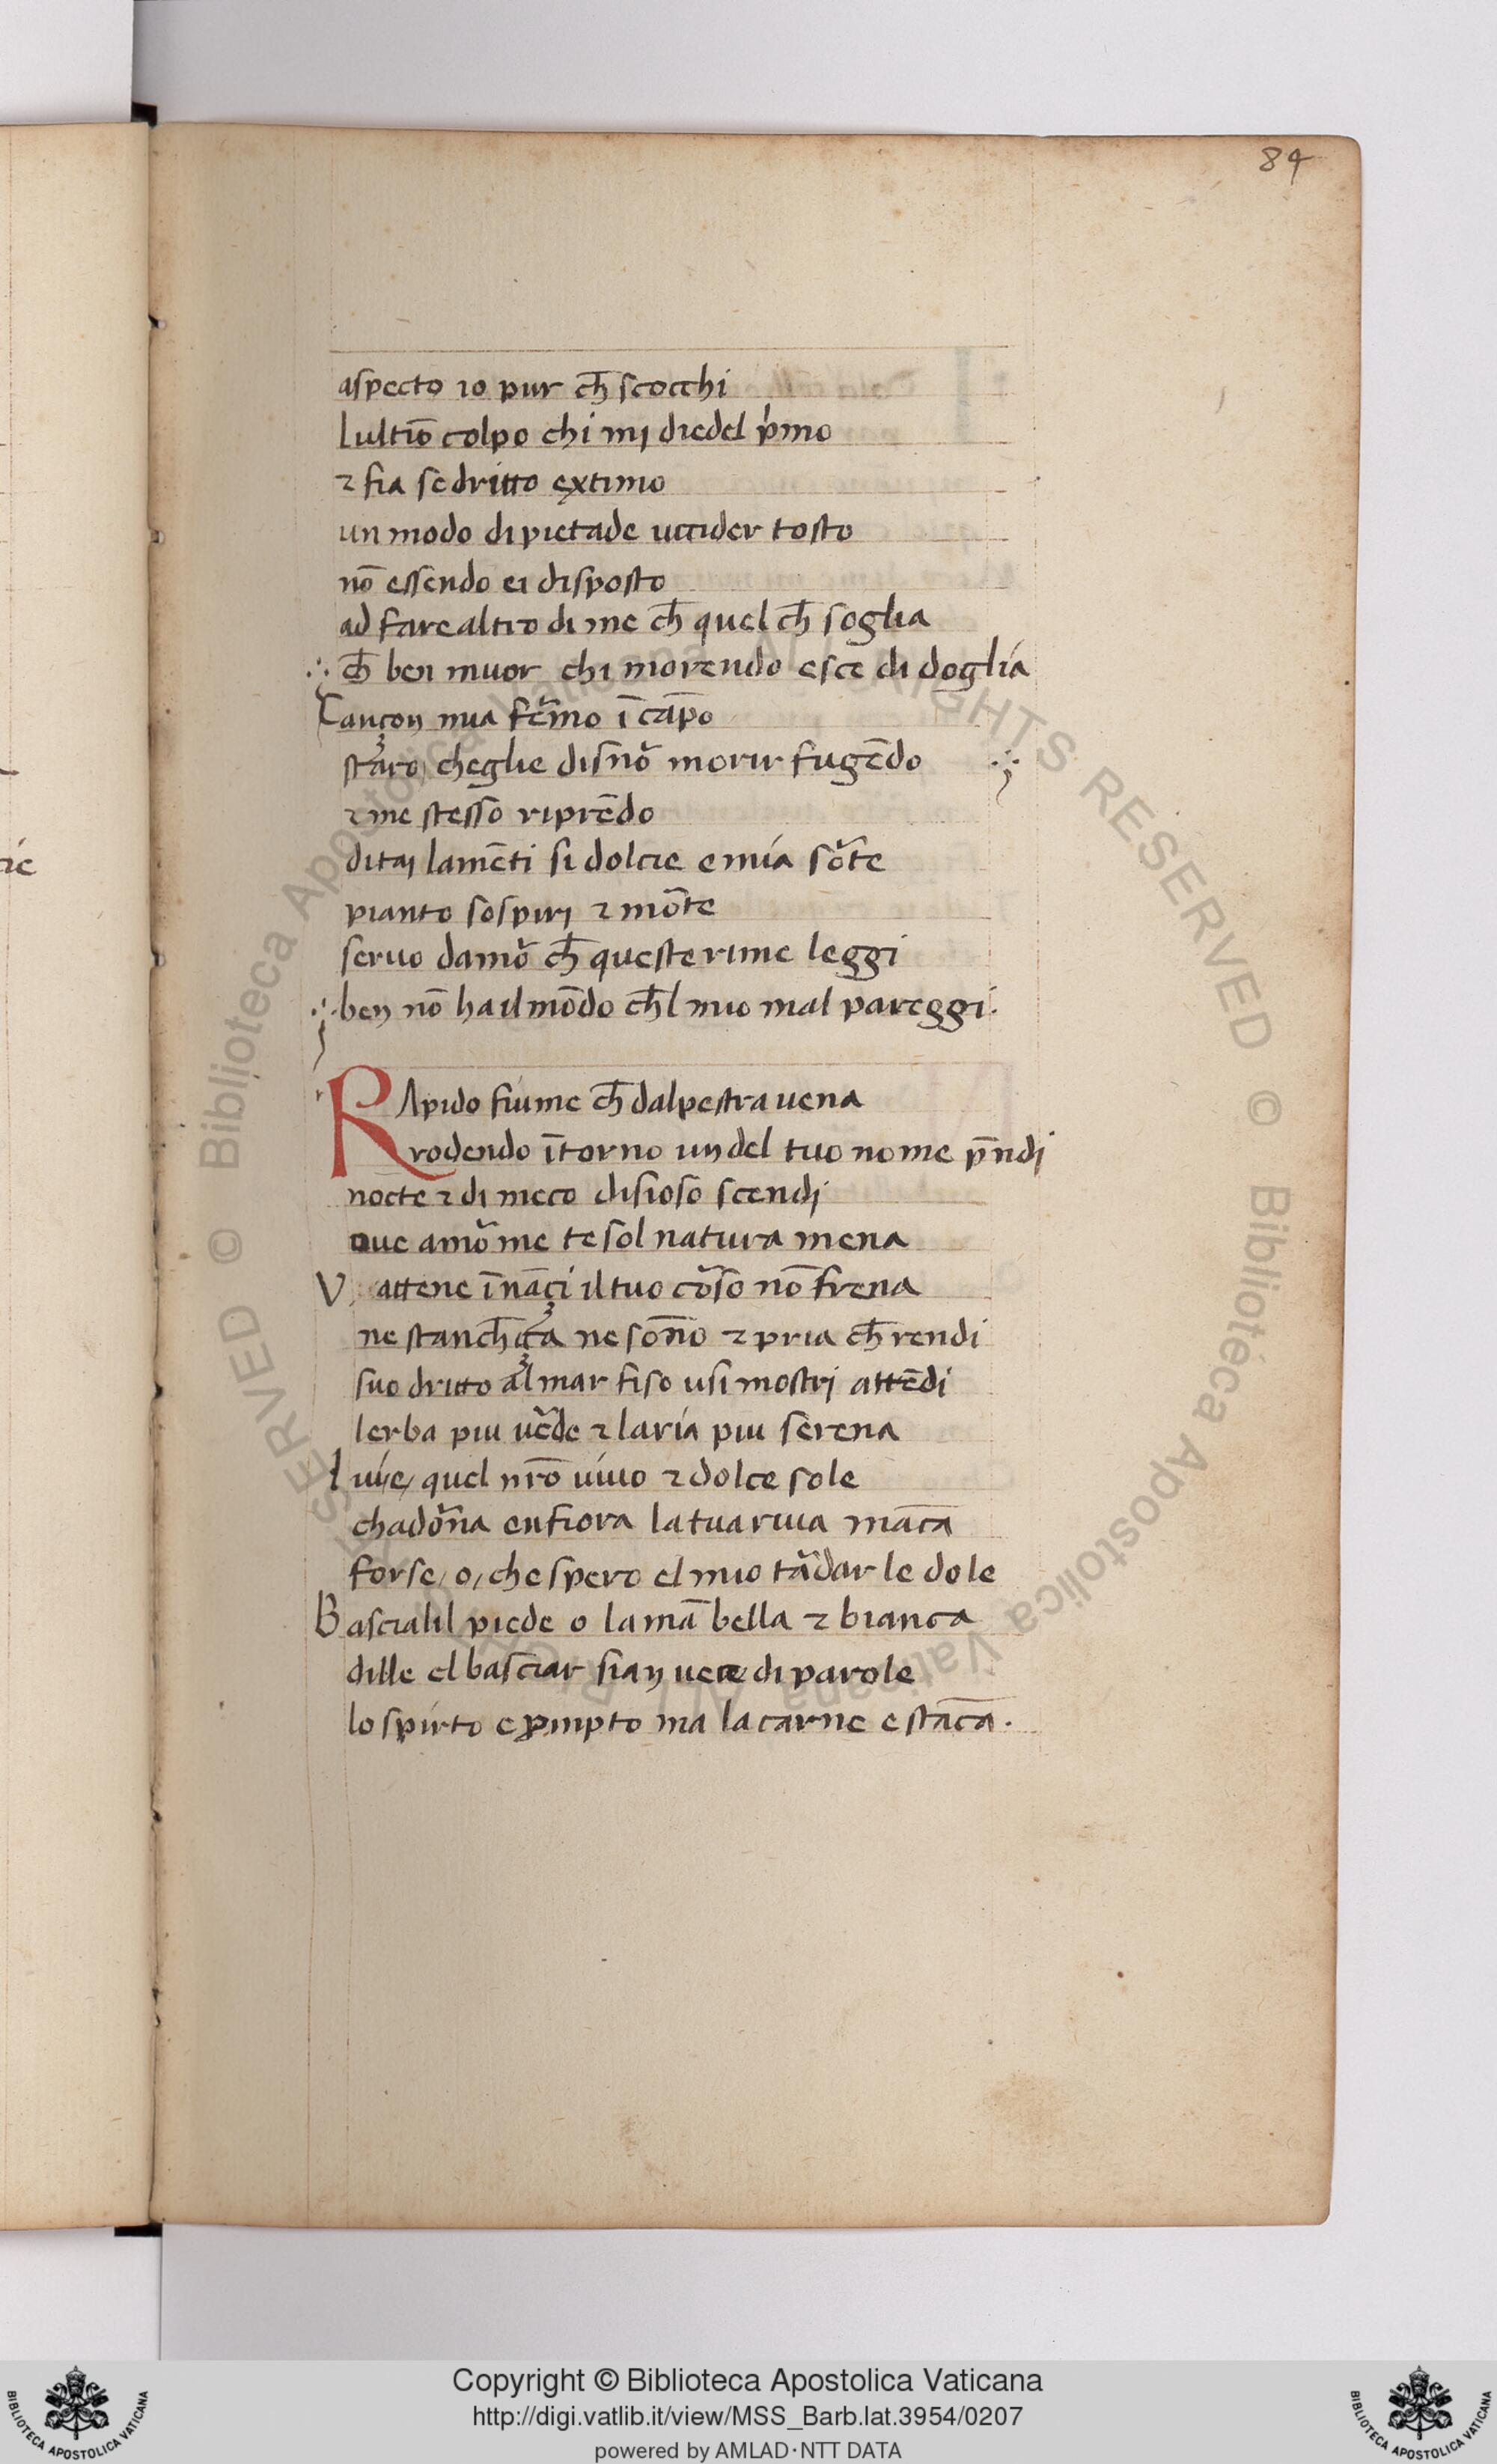 84
aspecto io pur ch̄ scocchi
Lultīo colpo chi mi diedel p̍mo
⁊ fia se dritto extimo
un modo di pietade uccider tosto
nō essendo ei disposto
ad fare altro di me ch̄ quel ch̄ soglia
ch̄ ben muor chi morendo esce di doglia
Cançon mia fe᷑mo ī cāpo
staro cheglie disno᷑ morir fugēdo
⁊ me stesso riprēdo
di taj lamēti si dolcie e mia so᷑te
pianto sospirj ⁊ mo᷑te
seruo damo᷑ ch̄ queste rime leggi
ben nō ha il mōdo ch̄l mio mal pareggi.
RApido fiume ch̄ dalpestra uena
rodendo ītorno un del tuo nome p̄ndj
nocte ⁊ di meco disioso scendj
oue amo᷑ me te sol natura mena
Vattene īnāçi il tuo co᷑so nō frena
ne stanch̄çça ne sōno ⁊ pria ch̄ rendi
suo dritto al mar fiso usi mostrj attēdi
lerba piu ue᷑de ⁊ laria piu serena
Iuie quel nr̄o uiuo ⁊ dolce sole
chado᷑na enfiora la tua riua māca
forse, o, che spero el mio ta᷑dar le dole
Bascialil piede o la mā bella ⁊ bianca
dille el basciar sian uece di parole
lo spirto e ꝓmpto ma la carne e stāca.
Copyright © Biblioteca Apostolica Vaticana
http://digi.vatlib.it/view/MSS_Barb.lat.3954/0207
powered by AMLAD·NTT DATA